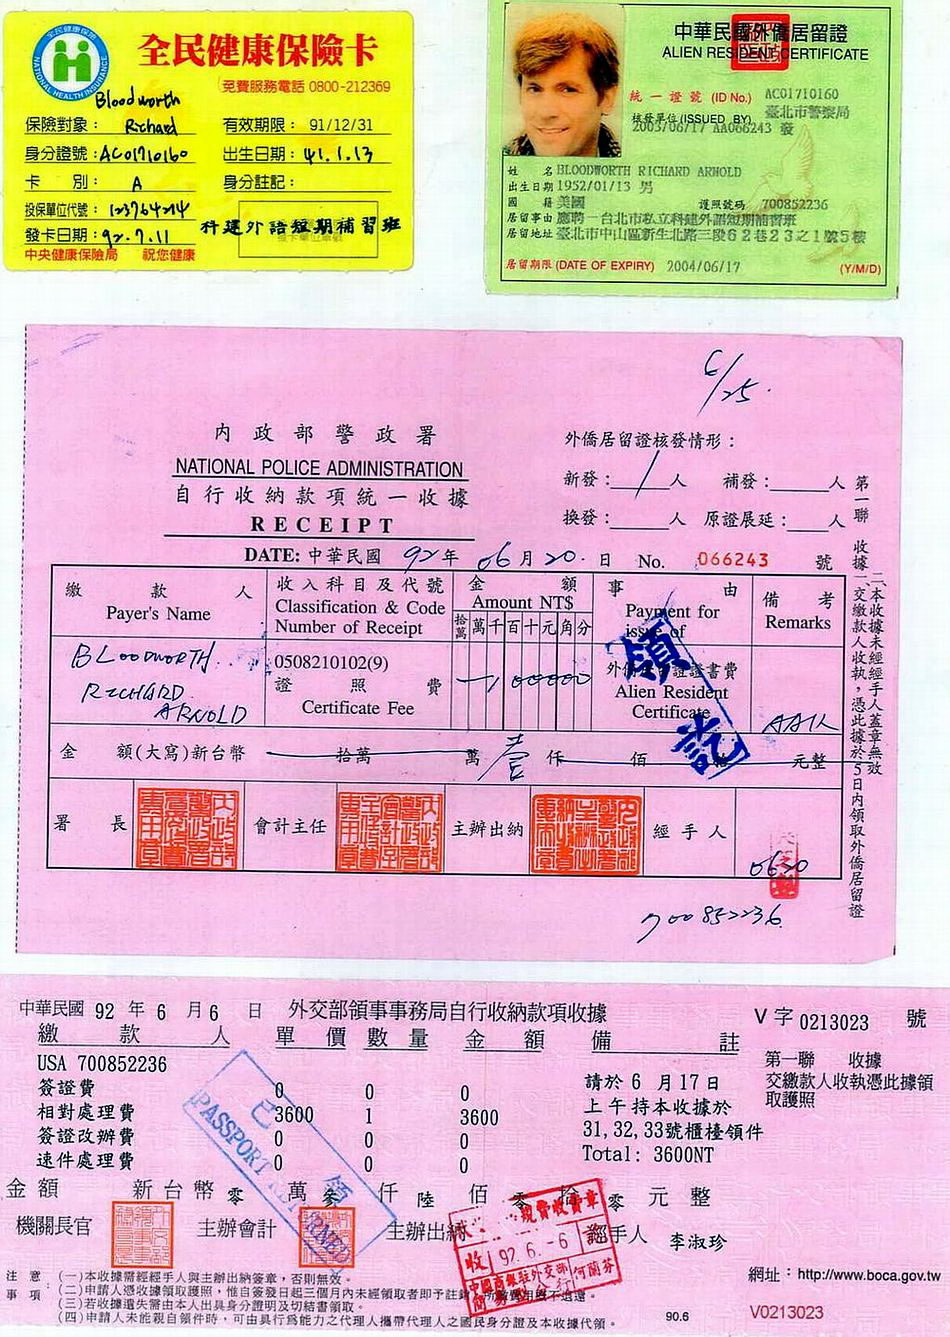 全民健康保險卡
NATIONAL HEALTH INSURANCE
免費服務電話 0800-212369
Bloodworth
保險對象： Richard 有效期限： 91/12/31
身分證號：AC01710160 出生日期： 41.1.13
卡 別： A 身分註記：
投保單位代號： 123764274
發卡日期：92.7.11 科建外語短期補習班
中央健康保險局 祝您健康
中華民國外僑居留證
ALIEN RESIDENT CERTIFICATE
統一證號 (ID No.) AC01710160
核發單位(ISSUED BY) 臺北市警察局
2003/06/17 AA066243 發
姓 名 BLOODWORTH RICHARD ARNOLD
出生日期 1952/01/13 男
國 籍 美國 護照號碼 700852236
居留事由 應聘－台北市私立科建外語短期補習班
居留地址 臺北市中山區新生北路三段62巷23之1號5樓
居留期限 (DATE OF EXPIRY) 2004/06/17 (Y/M/D)
6/25.
內政部警政署
NATIONAL POLICE ADMINISTRATION
自行收納款項統一收據
RECEIPT
外僑居留證核發情形：
新發： 1 人 補發：　　人
換發：　　人 原證展延：　　人
DATE: 中華民國 92 年 06 月 20 日 No. 066243 號
第一聯 收據 交繳款人收執，憑此據於5日內領取外僑居留證
二、本收據未經經手人蓋章無效
繳款人 收入科目及代號 金額 事由 備考
Payer's Name Classification & Code Number of Receipt Amount NT$ Payment for issue of Remarks
拾萬 萬 千 百 十 元 角 分
BLOODWORTH RICHARD ARNOLD
0508210102(9)
證照費
Certificate Fee
外僑居留證證書費
Alien Resident Certificate
領訖
金 額(大寫)新台幣 拾萬 萬 壹 仟 佰 拾 元整
署 長 會計主任 主辦出納 經手人
0620
700852236
中華民國 92 年 6 月 6 日 外交部領事事務局自行收納款項收據 V字 0213023 號
繳款人 單價 數量 金額 備註
USA 700852236
簽證費 0 0 0
相對處理費 3600 1 3600
簽證改辦費 0 0 0
速件處理費 0 0 0
請於 6 月17日
上午持本收據於
31,32,33號櫃檯領件
Total: 3600NT
第一聯 收據
交繳款人收執憑此據領
取護照
已領
PASSPORT RETURNED
金額 新台幣 零 萬 參 仟 陸 佰 零 拾 零 元 整
機關長官 主辦會計 主辦出納 經手人 李淑珍
規費收費章
收 92.6.-6
何蘭芬
注意事項
(一)本收據需經經手人與主辦出納簽章，否則無效。
(二)申請人憑收據領取護照，惟自簽發日起三個月內未經領取者即予註銷，所繳費用概不退還。
(三)若收據遺失需由本人出具身分證明及切結書領取。
(四)申請人未能親自領件時，可由具行為能力之代理人攜帶代理人之國民身分證及本收據代領。
網址：http://www.boca.gov.tw
90.6 V0213023